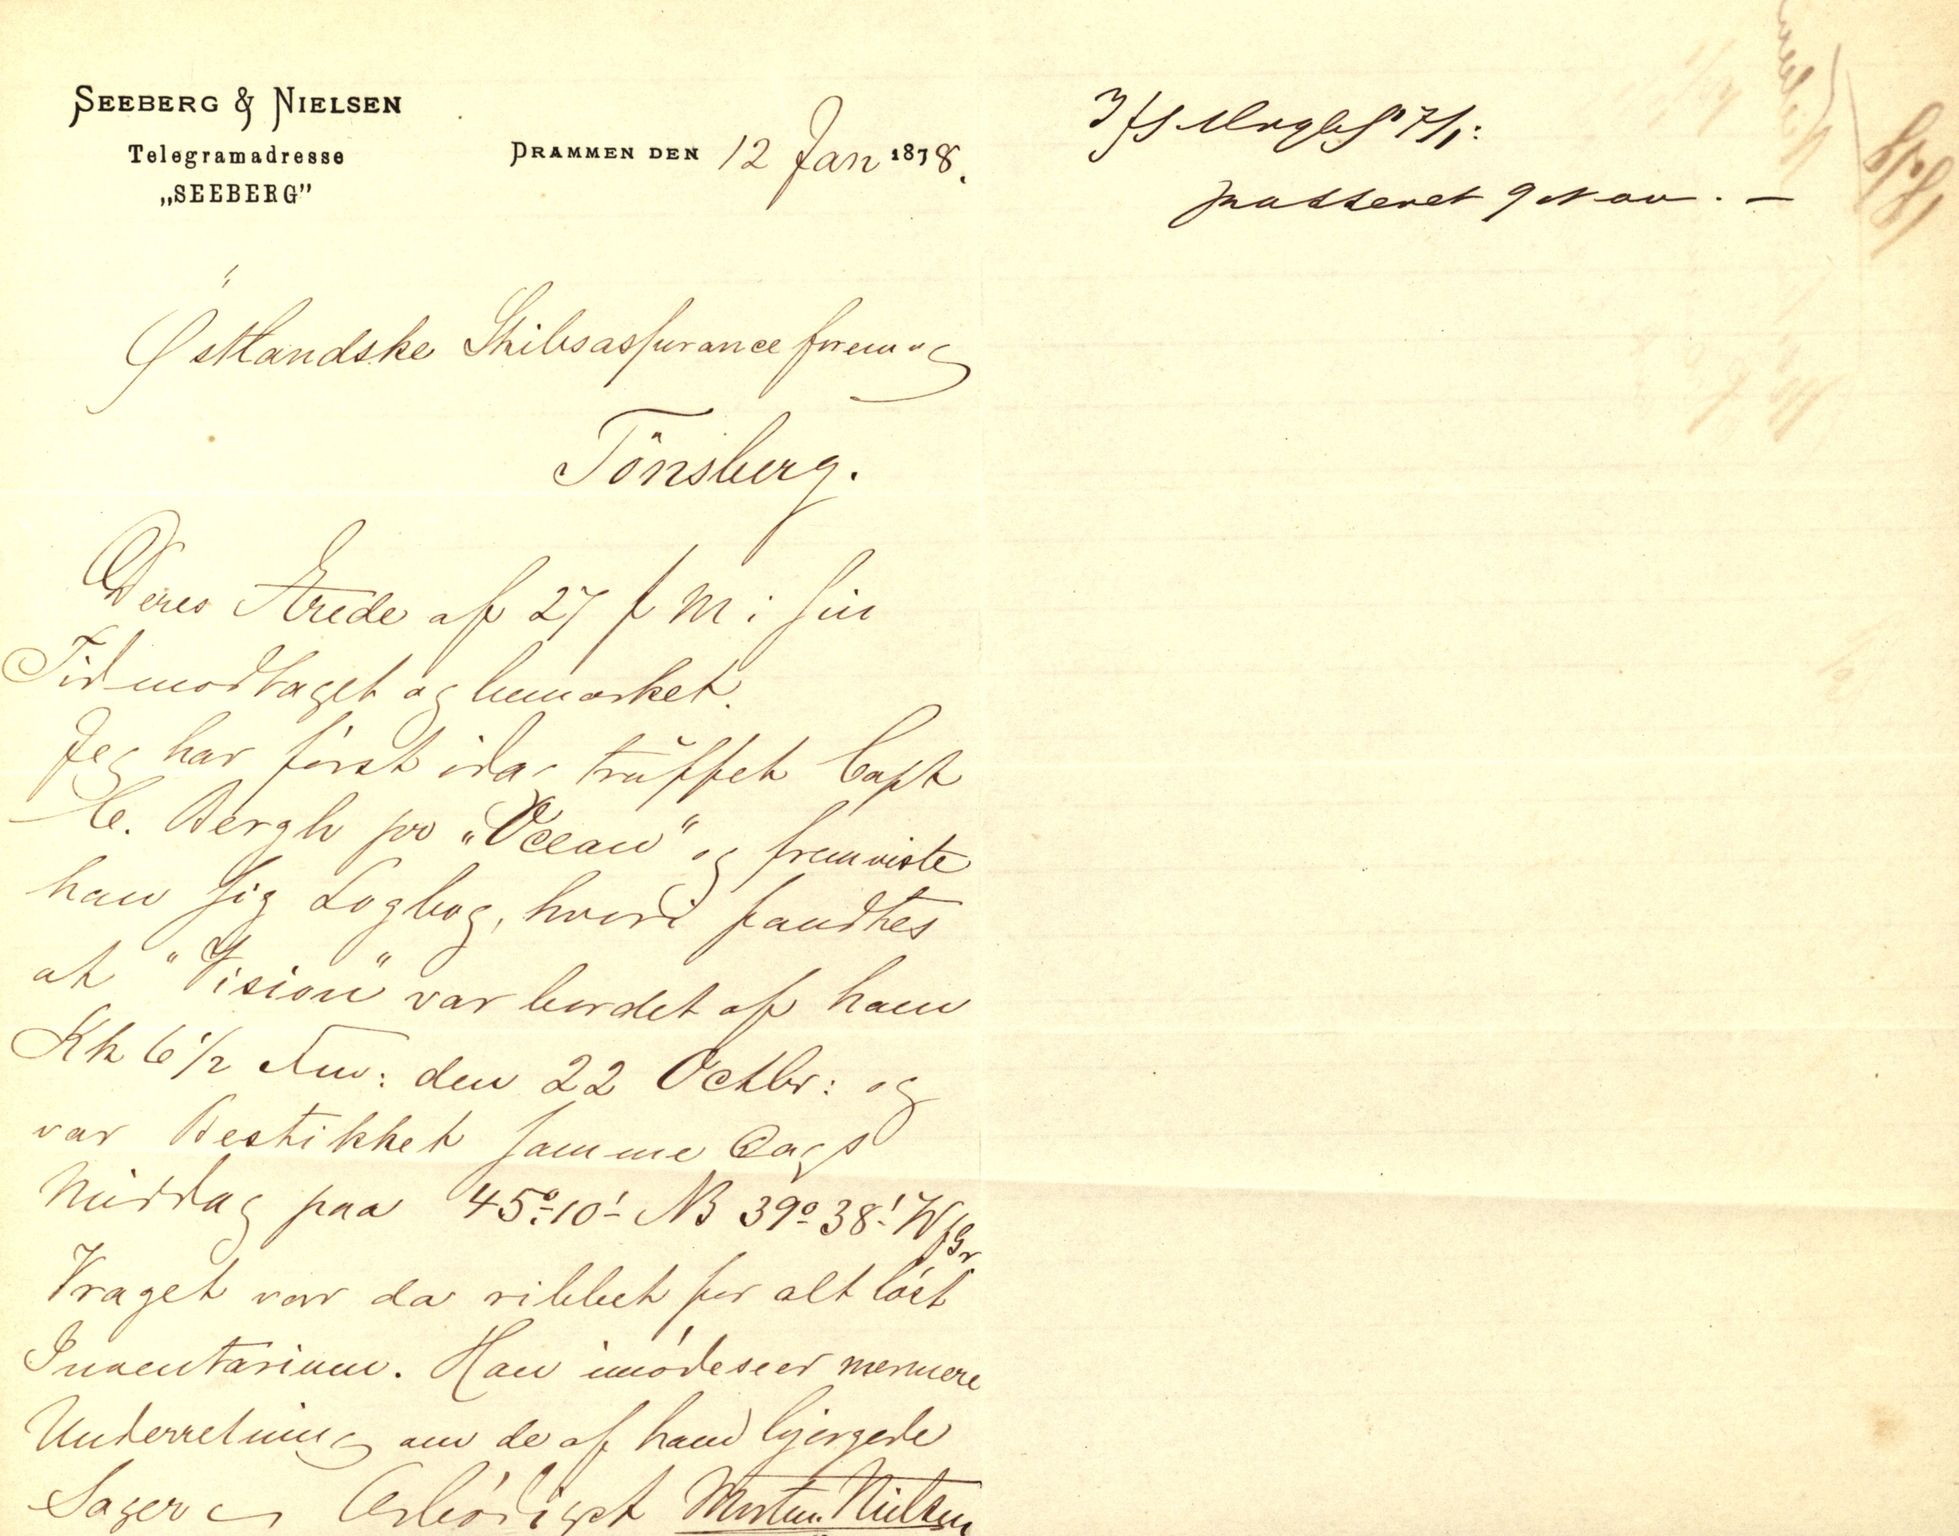 SEEBERG & NIELSEN
Telegramadresse
„SEEBERG"
DRAMMEN DEN 12 Jan 1878.
Östlandske Skibsassuranceforening
Tönsberg.
Deres Ærede af 27 f M: i sin
Tid modtaget og bemærket.
Jeg har först idag truffet Capt
C. Bergh pr „Ocean" og fremviste
han sig Logbog, hvori fandtes
at "Vision" var bordet af ham
Kl 6 1/2 Fm: den 22 Octbr: og
var Bestikket samme Dags
Middag paa 45° 10' NB 39° 38' W f Gr
Vraget var da ribbet for alt löst
Inventarium. Han imödeseer nermere
Underretning om de af ham bjergede
Sager Ærbödigst Morten Nielsen
passeret 9 Nov. —